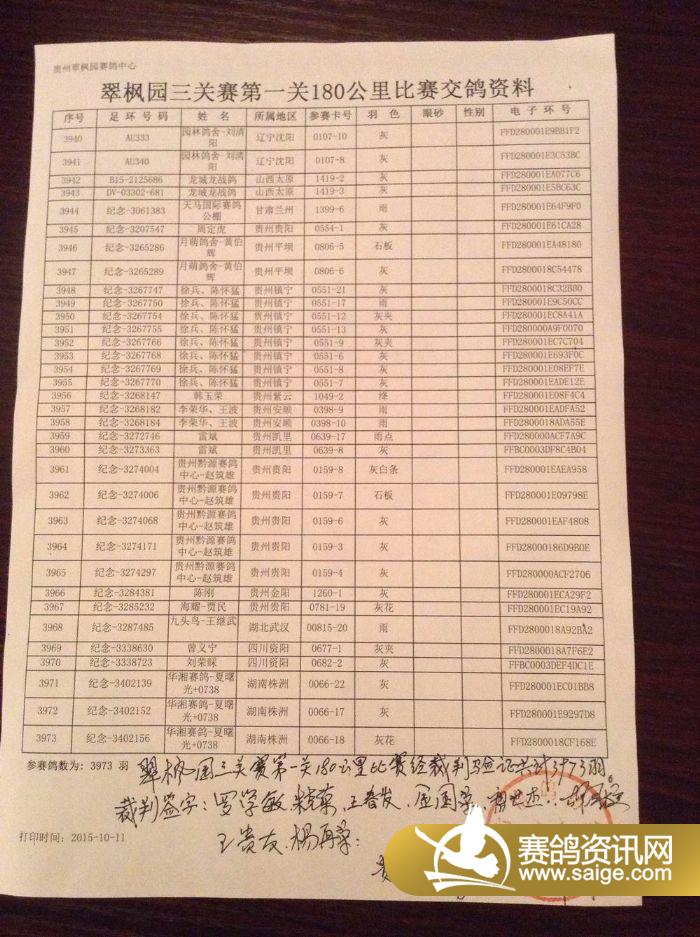 贵州翠枫园赛鸽中心
翠枫园三关赛第一关180公里比赛交鸽资料
序号 足 环 号 码 姓 名 所属地区 参赛卡号 羽 色 眼砂 性别 电 子 环 号
3940 AU333 园林鸽舍-刘清阳 辽宁沈阳 0107-10 灰 FFD280001E9BB1F2
3941 AU340 园林鸽舍-刘清阳 辽宁沈阳 0107-8 灰 FFD280001E3C53BC
3942 B15-2125686 龙城龙战鸽 山西太原 1419-2 灰 FFD280001EA077C6
3943 DV-03302-681 龙城龙战鸽 山西太原 1419-3 灰 FFD280001E5BC63C
3944 纪念-3061383 天马国际赛鸽公棚 甘肃兰州 1399-6 雨 FFD280001E64F9F0
3945 纪念-3207547 周定虎 贵州贵阳 0554-1 灰 FFD280001E61CA28
3946 纪念-3265286 月萌鸽舍-黄伯辉 贵州平坝 0806-5 石板 FFD280001EA48180
3947 纪念-3265289 月萌鸽舍-黄伯辉 贵州平坝 0806-6 灰 FFD2800018C54478
3948 纪念-3267747 徐兵、陈怀猛 贵州镇宁 0551-21 灰 FFD2800018C32BB0
3949 纪念-3267750 徐兵、陈怀猛 贵州镇宁 0551-17 雨 FFD280001E9C50CC
3950 纪念-3267754 徐兵、陈怀猛 贵州镇宁 0551-12 灰夹 FFD280001EC8A41A
3951 纪念-3267755 徐兵、陈怀猛 贵州镇宁 0551-13 灰 FFD280000A9F0070
3952 纪念-3267766 徐兵、陈怀猛 贵州镇宁 0551-9 灰夹 FFD280001EC7C704
3953 纪念-3267768 徐兵、陈怀猛 贵州镇宁 0551-6 灰 FFD280001E693F0C
3954 纪念-3267769 徐兵、陈怀猛 贵州镇宁 0551-8 灰 FFD280001E08EF7E
3955 纪念-3267770 徐兵、陈怀猛 贵州镇宁 0551-7 灰 FFD280001EADE12E
3956 纪念-3268147 韩玉荣 贵州紫云 1049-2 绛 FFD280001E08F4C4
3957 纪念-3268182 李荣华、王波 贵州安顺 0398-9 雨 FFD280001EADFA52
3958 纪念-3268184 李荣华、王波 贵州安顺 0398-10 雨 FFD2800018ADA55E
3959 纪念-3272746 雷斌 贵州凯里 0639-17 雨点 FFD280000ACF7A9C
3960 纪念-3273363 雷斌 贵州凯里 0639-8 灰 FFBC0003DF8C4B04
3961 纪念-3274004 贵州黔源赛鸽中心-赵筑雄 贵州贵阳 0159-8 灰白条 FFD280001EAEA958
3962 纪念-3274006 贵州黔源赛鸽中心-赵筑雄 贵州贵阳 0159-7 石板 FFD280001E09798E
3963 纪念-3274068 贵州黔源赛鸽中心-赵筑雄 贵州贵阳 0159-6 灰 FFD280001EAF4808
3964 纪念-3274171 贵州黔源赛鸽中心-赵筑雄 贵州贵阳 0159-3 灰 FFD28000186D9B0E
3965 纪念-3274297 贵州黔源赛鸽中心-赵筑雄 贵州贵阳 0159-4 灰 FFD280000ACF2706
3966 纪念-3284381 陈刚 贵州金阳 1260-1 灰 FFD280001ECA29F2
3967 纪念-3285232 海耀-贾民 贵州贵阳 0781-19 灰花 FFD280001EC19A92
3968 纪念-3287485 九头鸟-王继武 湖北武汉 00815-20 雨 FFD2800018A92BA2
3969 纪念-3338630 曾义宁 四川资阳 0677-1 灰夹 FFD2800018A7F6E2
3970 纪念-3338723 刘荣睬 四川资阳 0682-2 灰 FFBC0003DEF4DC1E
3971 纪念-3402139 华湘赛鸽-夏曙光+0738 湖南株洲 0066-22 灰 FFD280001EC01BB8
3972 纪念-3402152 华湘赛鸽-夏曙光+0738 湖南株洲 0066-17 灰 FFD280001E9297D8
3973 纪念-3402156 华湘赛鸽-夏曙光+0738 湖南株洲 0066-18 灰花 FFD2800018CF168E
参赛鸽数为: 3973 羽 翠枫园三关赛第一关180公里比赛经裁判验证共计3973羽。
裁判签字:罗学敏
王贵友、杨再
打印时间: 2015-10-11
赛鸽资讯网
www.saige.com